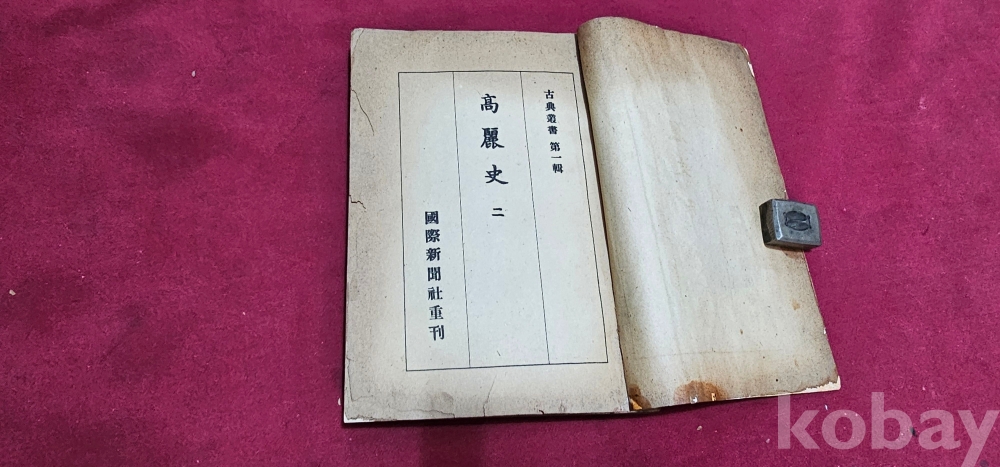 古典叢書 第一輯
高麗史 二
國際新聞社重刊
kobay